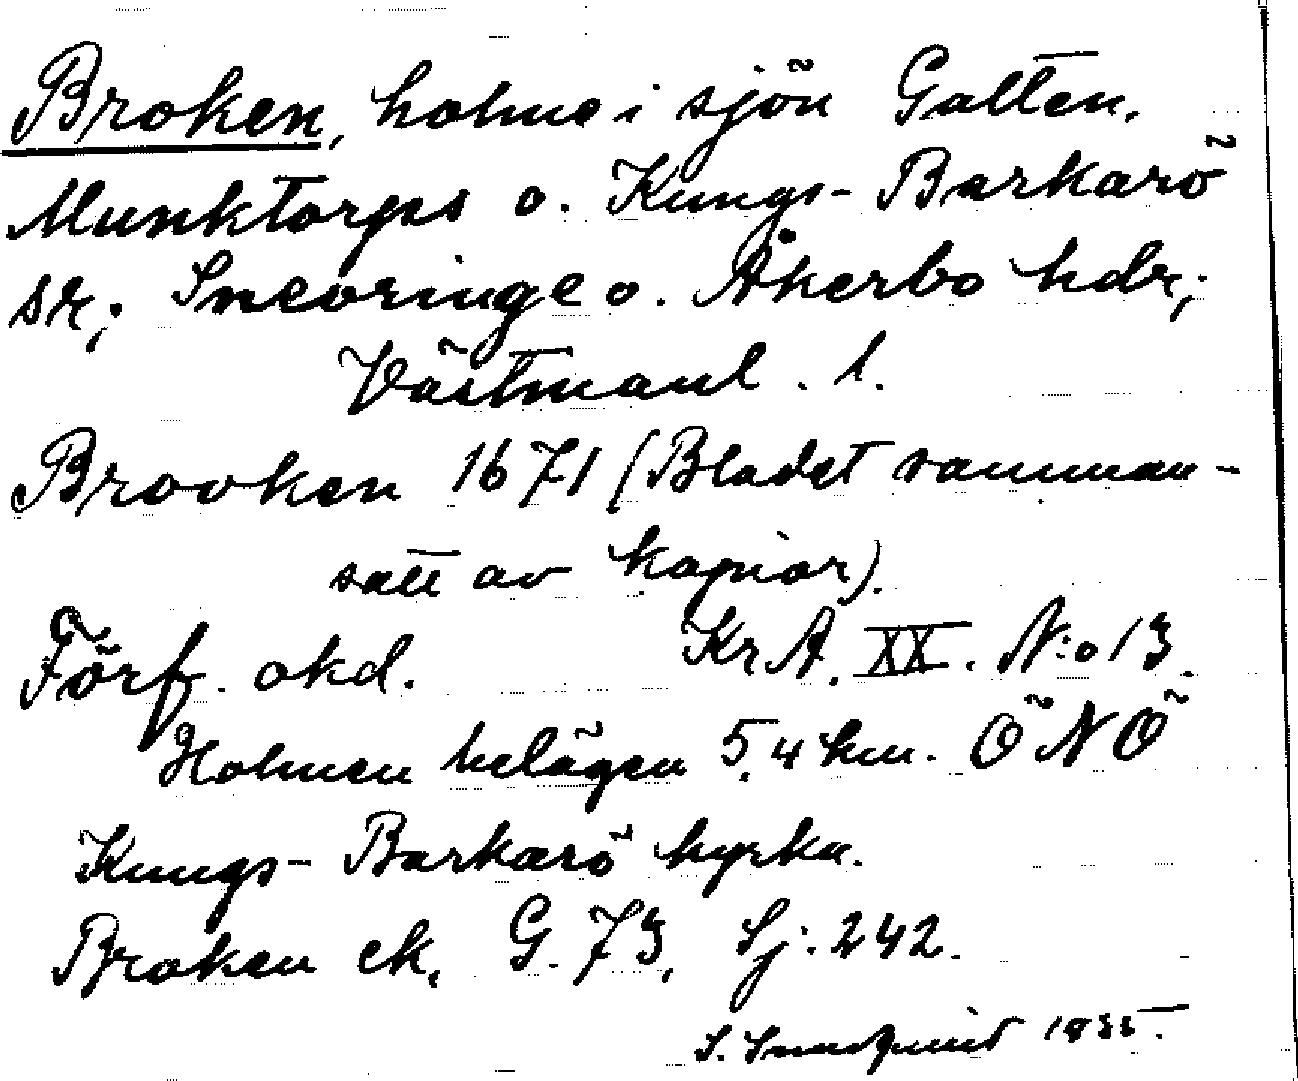 Broken, holme i sjön Galten,
Munktorps o. Kungs-Barkarö
sr, Snevringe o. Åkerbo hdr,
Västmanl. l.
Brovken 1671 (Bladet samman-
satt av kopior).
Förf. okd. Kr A. XX. N:o 13.
Holmen belägen 5,4 km. ÖNÖ
Kungs-Barkarö kyrka.
Broken ek. G. 73, Sj: 242.
S. 1935.